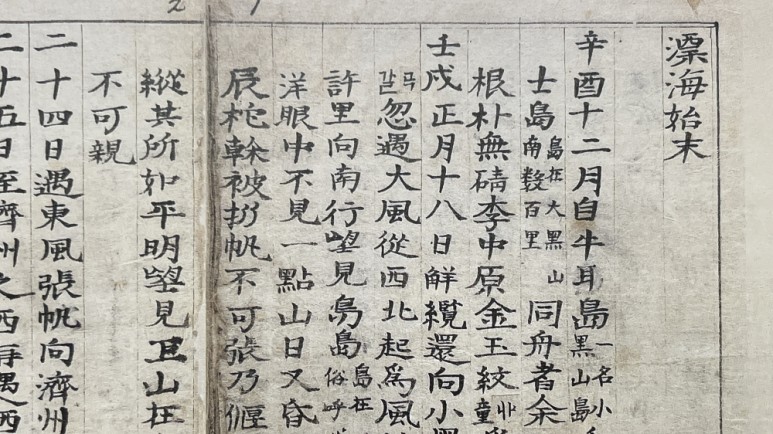 漂海始末
辛酉十二月自牛耳島一名小
黑山島
士島島在大黑山
南數百里同舟者余
根朴無碃李中原金玉紋
童
壬戌正月十八日觧纜還向小黑
忽遇大風從西北起爲風
갈마
許里向南行望見㠀島島在
俗呼
洋眼中不見一點山日又昏
辰柁榦被扸帆不可張乃偃
縱其所如平明望見巨山在
不可親
二十四日遇東風張帆向濟州
二十五日至濟州之西再遇西
2 1